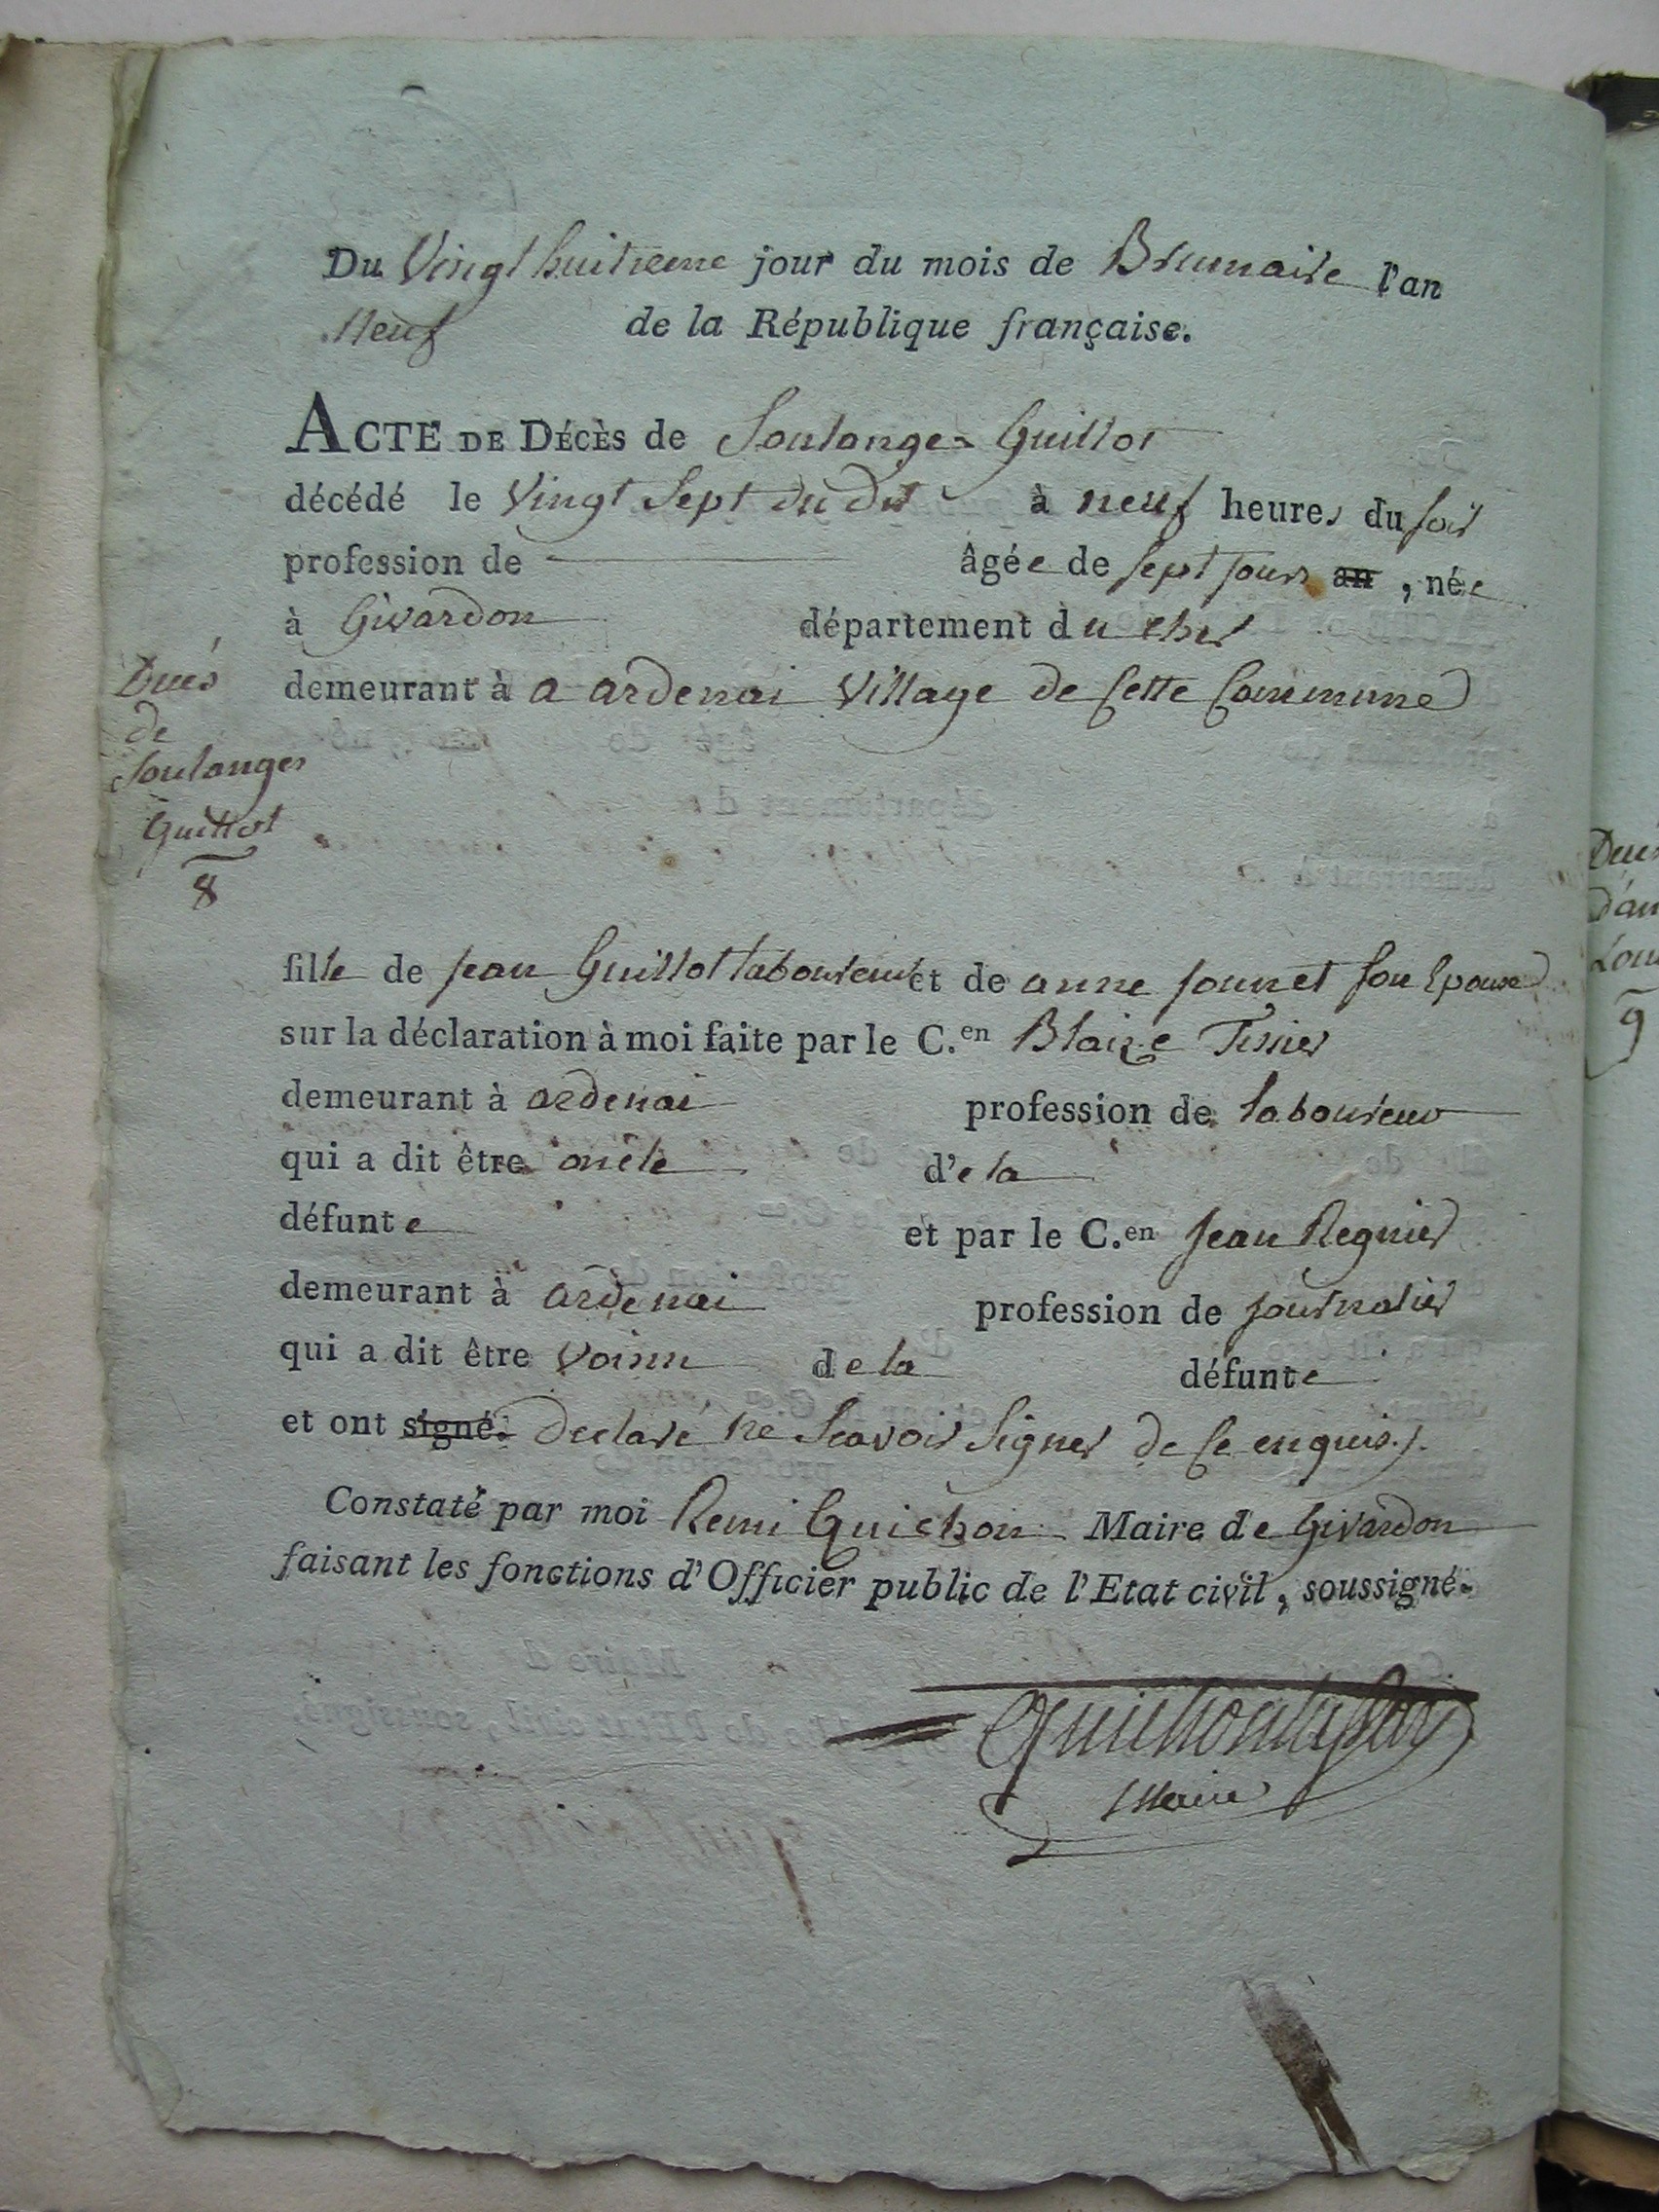 Du Vingt huitieme jour du mois de Brumaire l'an
Neuf de la République française.
ACTE DE DÉCÈS de Soulange Guillot
décédé le Vingt Sept du dit à neuf heures du soir
profession de âgée de sept jours an, née
à Givardon département du cher
demeurant à a ardenai Village de Cette Commune
Duès
de
Soulanges
Guillot
8
fille de jean Guillot laboureur et de anne jounet son Epouse
sur la déclaration à moi faite par le C.en Blaize Tissier
demeurant à ardenai profession de laboureur
qui a dit être oncle d'e la
défunte et par le C.en jean Regnier
demeurant à ardenai profession de journalier
qui a dit être Voisin de la défunte
et ont signé. declaré ne Scavoir Signer de Ce enquis./.
Constaté par moi Remi Guichon Maire de Givardon
faisant les fonctions d'Officier public de l'Etat civil, soussigné.
Maire
Duès
9